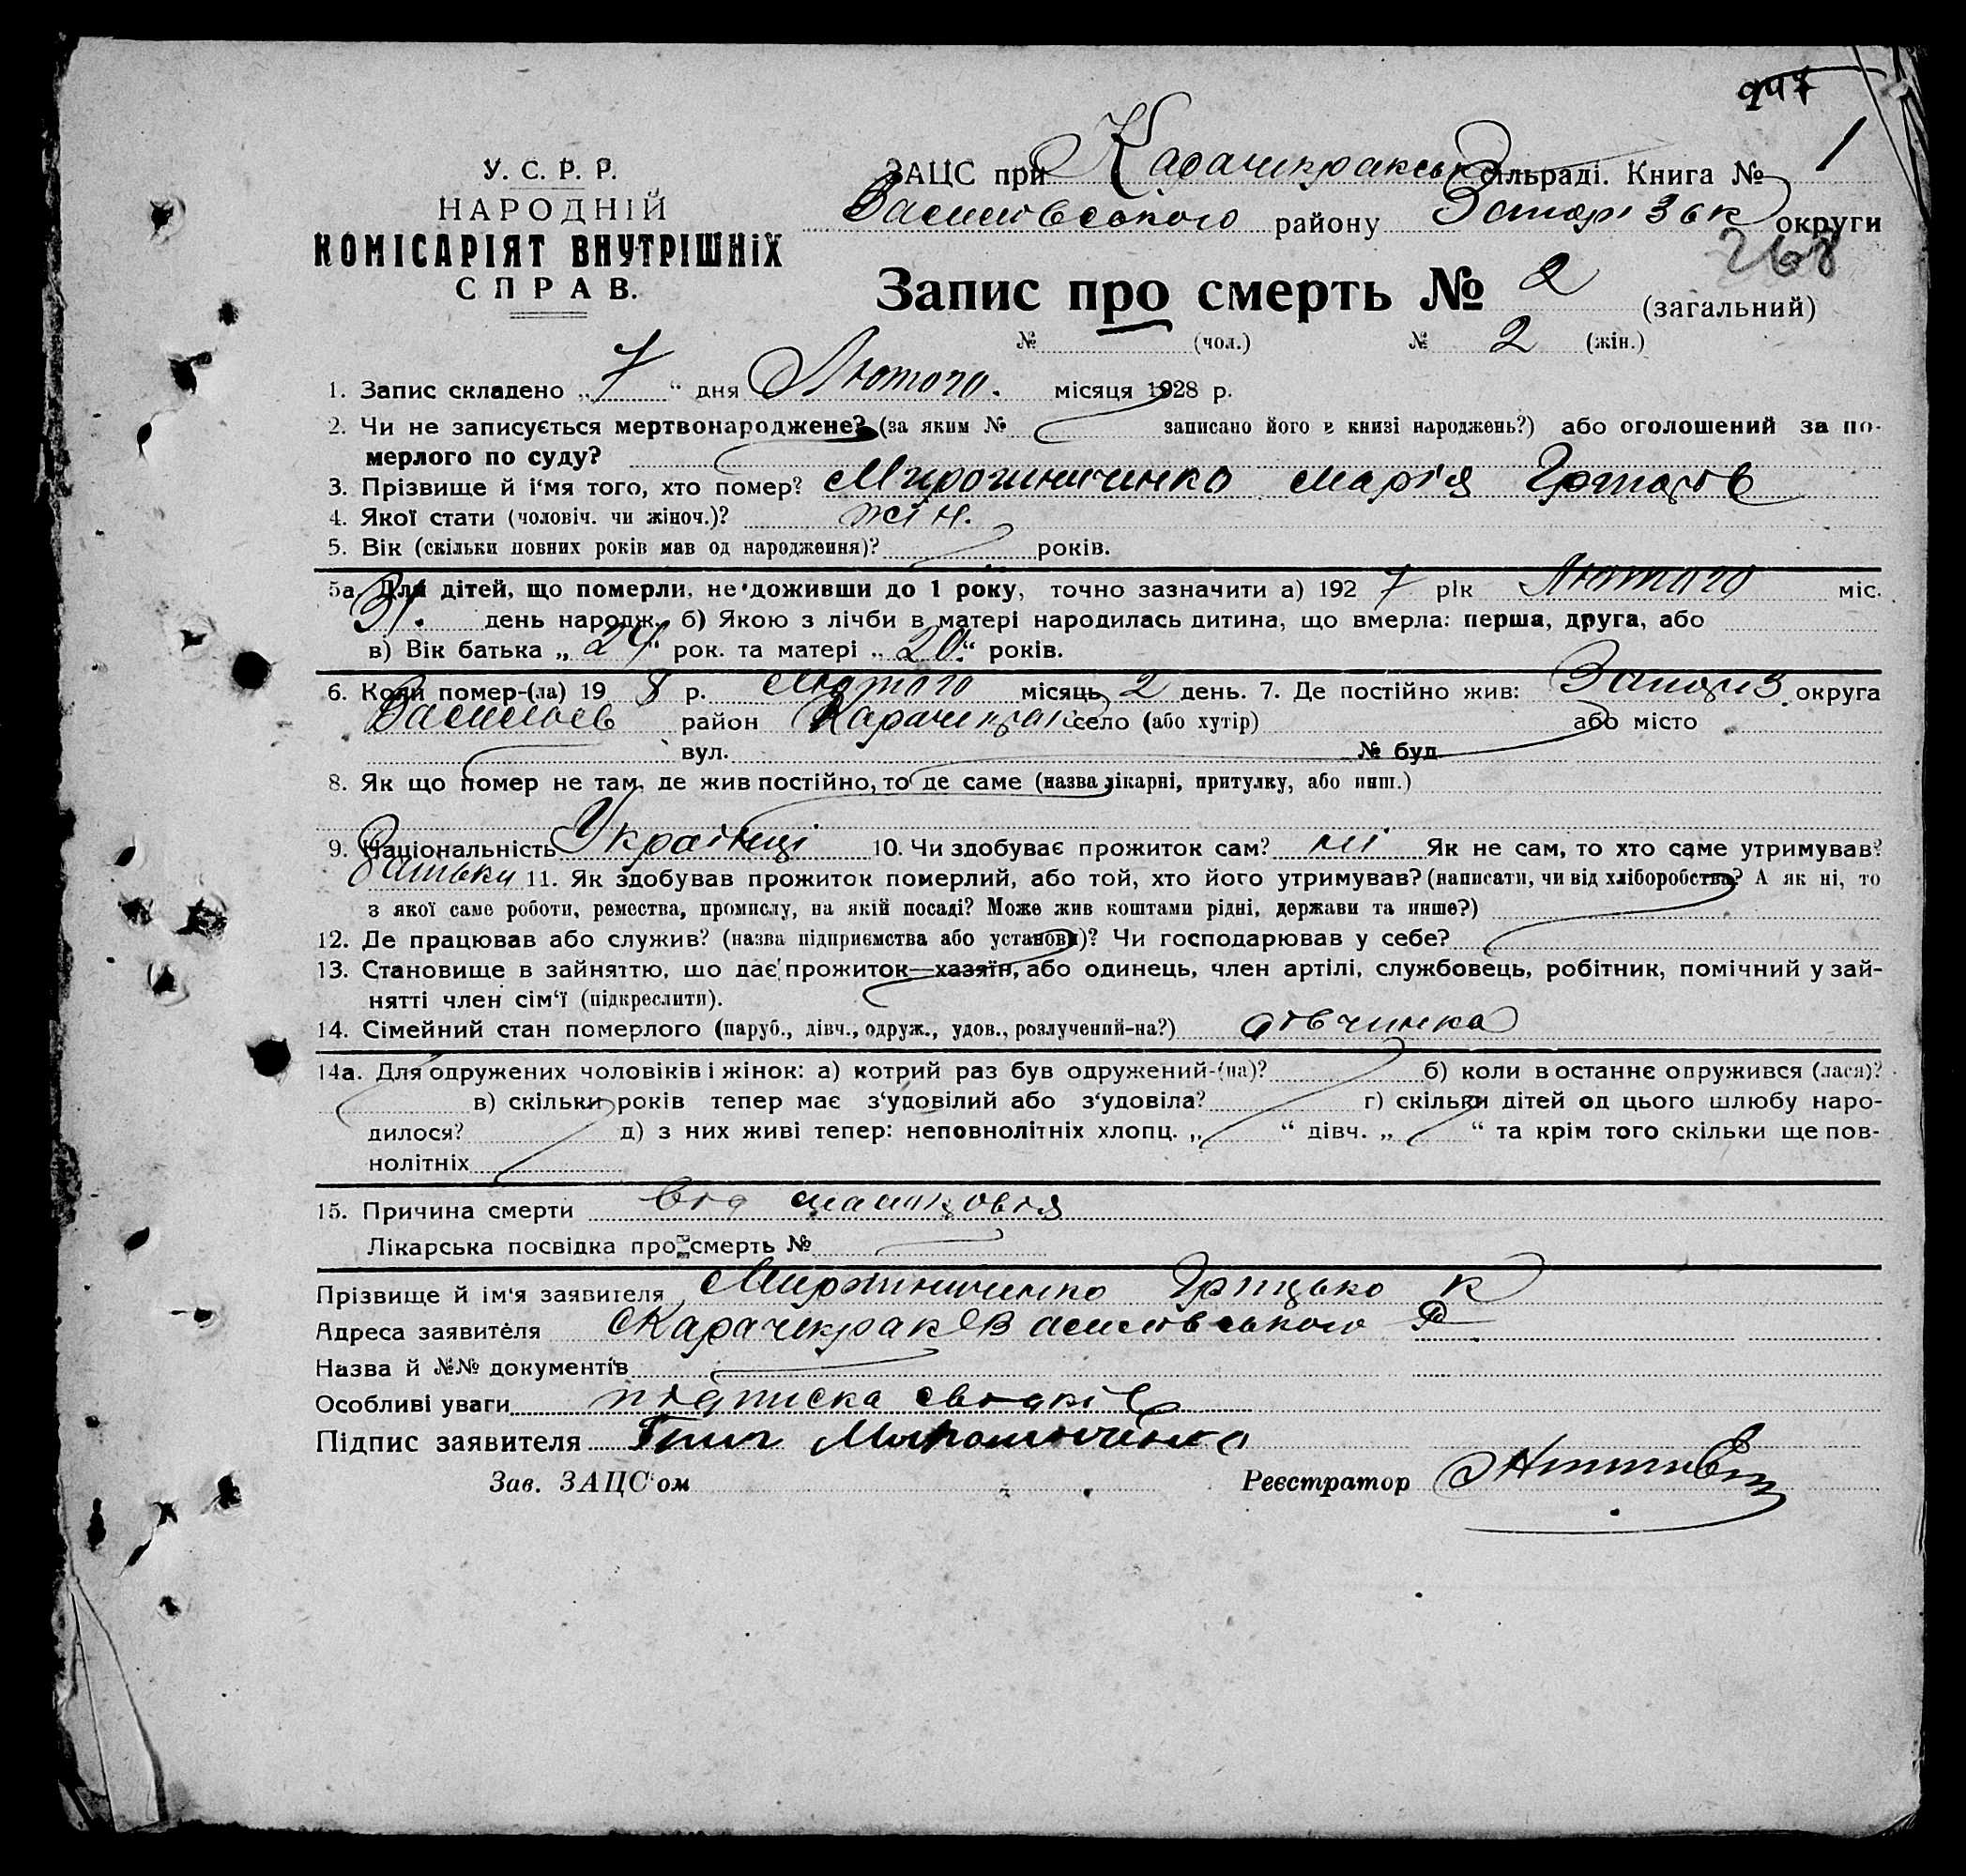 947
У. С. Р. Р.
НАРОДНІЙ
КОМІСАРІЯТ ВНУТРІШНІХ
СПРАВ.
ЗАЦС при Карачикракськ сільраді. Книга № 1
Василівського району Запорізьк округи
268
Запис про смерть № 2 (загальний)
№ (чол.) № 2 (жін.)
1. Запис складено „ 7 “ дня Лютого. місяця 1928 р.
2. Чи не записується мертвонароджене? (за яким № записано його в книзі народжень?) або оголошений за по-
мерлого по суду?
3. Прізвище й і‘мя того, хто помер? Мирошниченко Марія
4. Якої стати (чоловіч. чи жіноч.)? жін.
5. Вік (скільки повних років мав од народження)? років.
5а. Для дітей, що померли, не доживши до 1 року, точно зазначити а) 192 7 рік Лютого міс.
31. день народж. б) Якою з лічби в матері народилась дитина, що вмерла: перша, друга, або
в) Вік батька „ 24 “ рок. та матері „ 20 “ років.
6. Коли помер-(ла) 19 8 р. Лютого місяць 2 день. 7. Де постійно жив: Запоріз округа
Васильев район Карачикрак село (або хутір) або місто
вул. № буд.
8. Як що помер не там, де жив постійно, то де саме (назва лікарні, притулку, або инш.)
9. Національність Українці 10. Чи здобуває прожиток сам? ні Як не сам, то хто саме утримував?
батьки 11. Як здобував прожиток померлий, або той, хто його утримував? (написати, чи від хліборобства? А як ні, то
з якої саме роботи, ремества, промислу, на якій посаді? Може жив коштами рідні, держави та инше?)
12. Де працював або служив? (назва підприємства або установи)? Чи господарював у себе?
13. Становище в зайняттю, що дає прожиток—хазяїн, або одинець, член артілі, службовець, робітник, помічний у зай-
нятті член сім‘ї (підкреслити).
14. Сімейний стан померлого (паруб., дівч., одруж., удов., розлучений-на?) дівчинка
14а. Для одружених чоловіків і жінок: а) котрий раз був одружений-(на)? б) коли в останнє одружився (лася)?
в) скільки років тепер має з‘удовілий або з‘удовіла? г) скільки дітей од цього шлюбу наро-
дилося? д) з них живі тепер: неповнолітніх хлопц. „ “ дівч. „ “ та крім того скільки ще пов-
нолітніх
15. Причина смерти від
Лікарська посвідка про смерть №
Прізвище й ім‘я заявителя Мирошниченко Грицько К
Адреса заявителя Карачикрак Василівського Р
Назва й №№ документів
Особливі уваги підписка свідків
Підпис заявителя Григ Мирошниченко
Зав. ЗАЦС‘ом Реєстратор